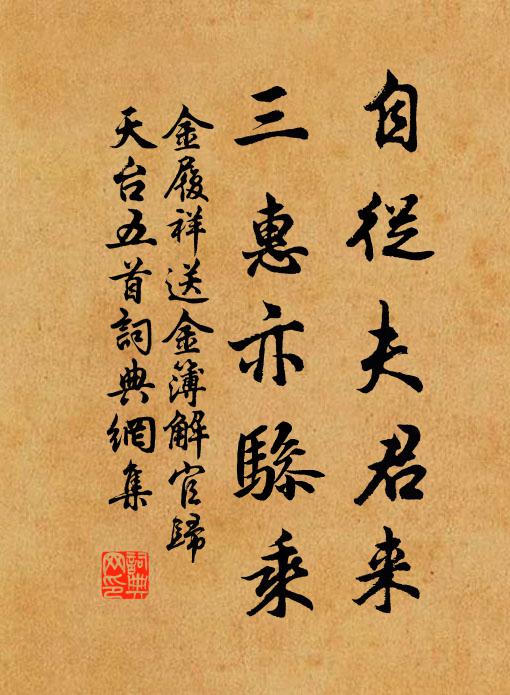 自從夫君来
三惠亦驂乘
金履祥送金簿解官歸
天台五首詞典網集
詞典网印